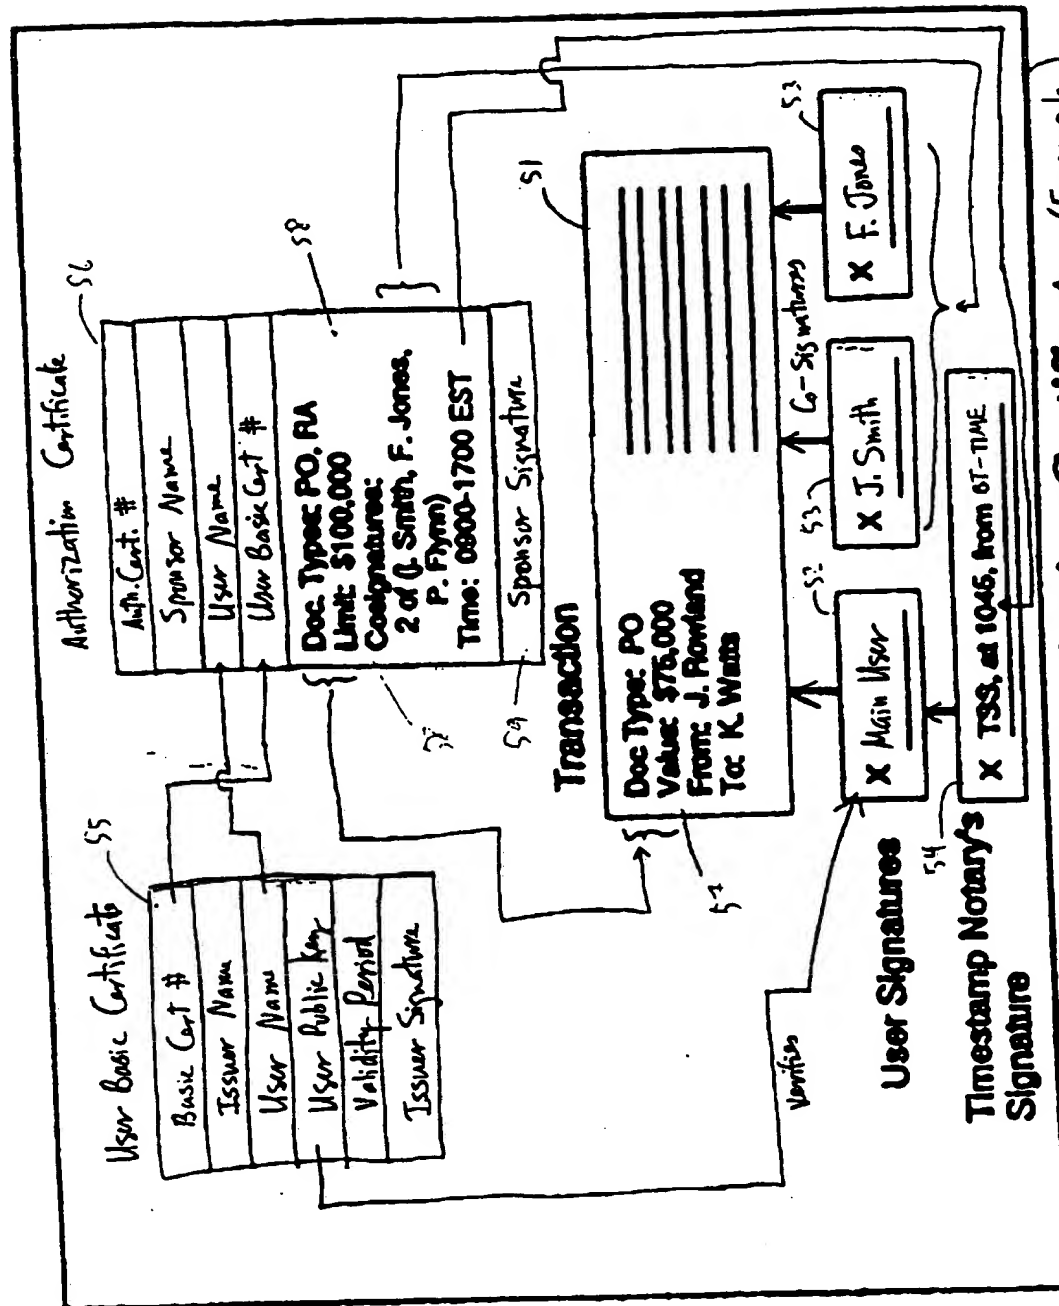 User Basic Certificate
55
Basic Cert #
Issuer Name
User Name
User Public Key
Validity Period
Issuer Signature
Authorization Certificate
56
Auth. Cert. #
Sponsor Name
User Name
User Basic Cert #
Doc. Types: PO, RA
Limit: $100,000
Cosignatures:
2 of (J. Smith, F. Jones,
P. Flynn)
Time: 0900-1700 EST
58
59
Sponsor Signature
Transaction
51
Doc Type: PO
Value: $75,000
From: J. Rowland
To: K. Watts
57
Verifies
User Signatures
52
X Main User
53
X J. Smith
Co-Signatures
53
X F. Jones
54
Timestamp Notary's
Signature
X TSS, at 1045, from BT-TIME